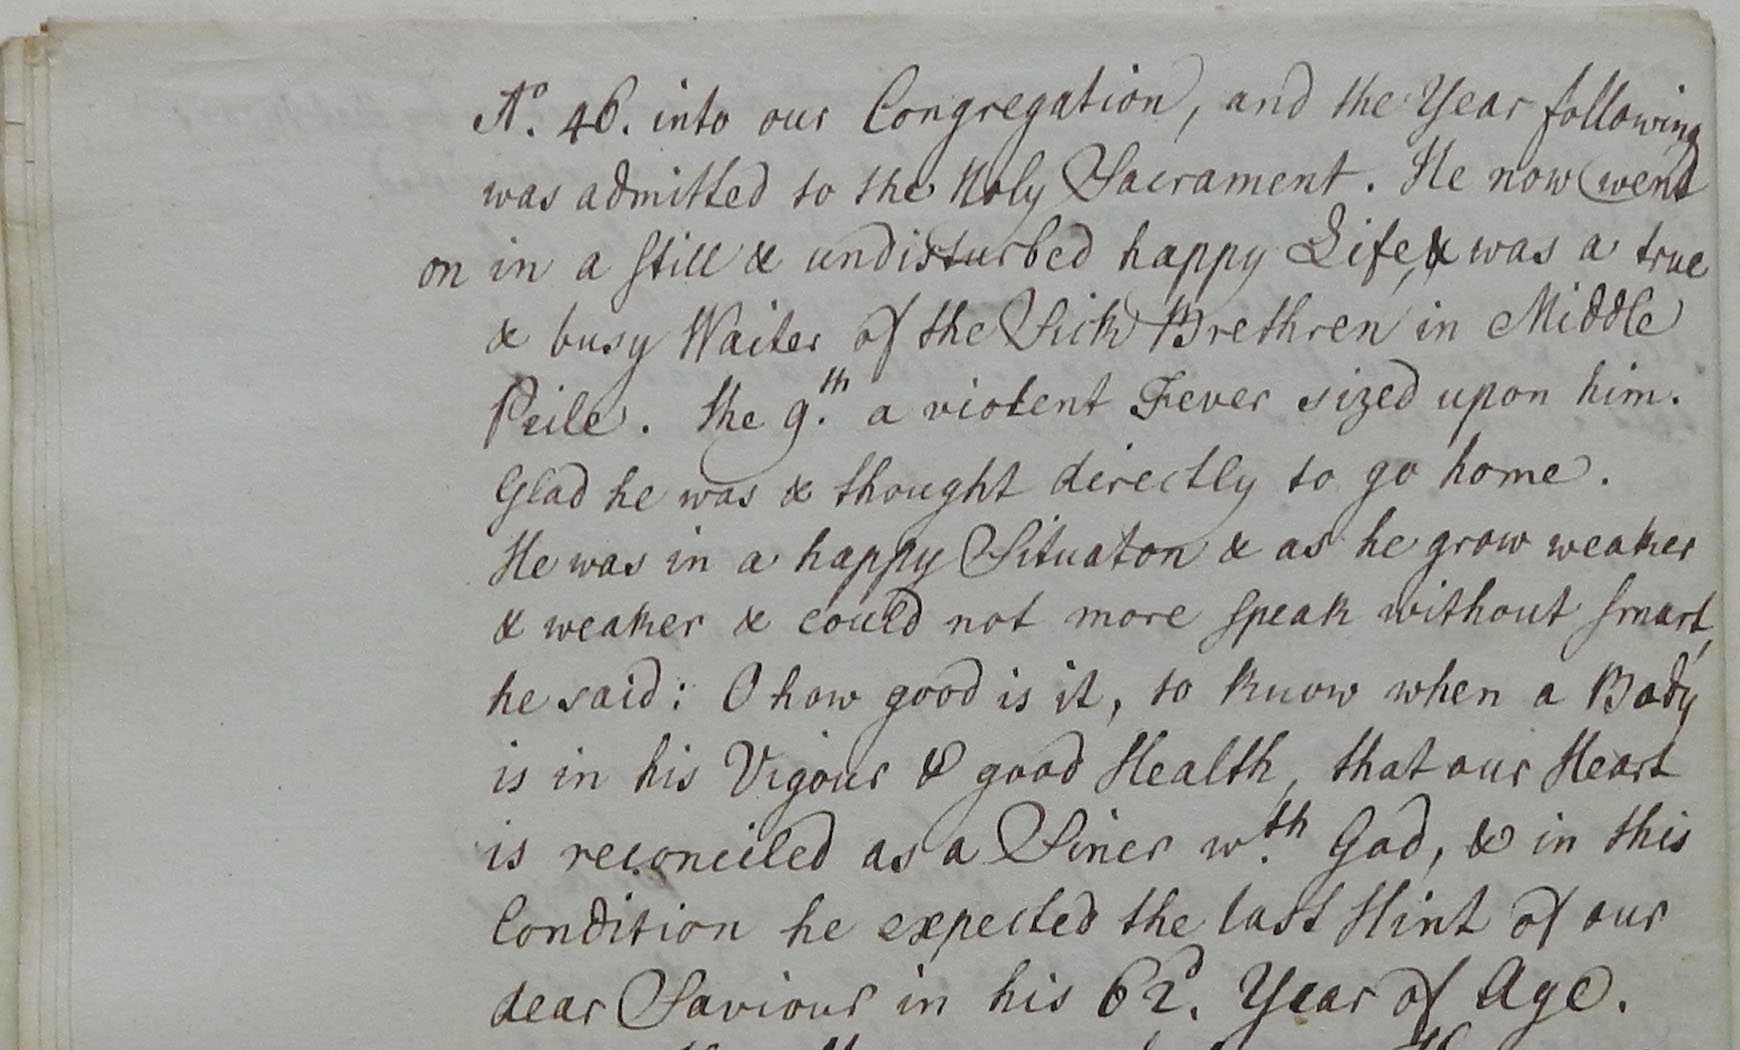 Aº. 46. into our Congregation, and the Year following
was admitted to the Holy Sacrament. He now went
on in a still & undisturbed happy Life, & was a true
& busy Waiter of the Sick Brethren in Middle
Peile. the 9.th a violent Fever sized upon him.
Glad he was & thought directly to go home.
He was in a happy Situaton & as he grow weaker
& weaker & could not more speak without smart,
he said: O how good is it, to know when a Body
is in his Vigour & good Health, that our Heart
is reconciled as a Siner w.th God, & in this
Condition he expected the last Hint of our
dear Saviour in his 62.d Year of Age.